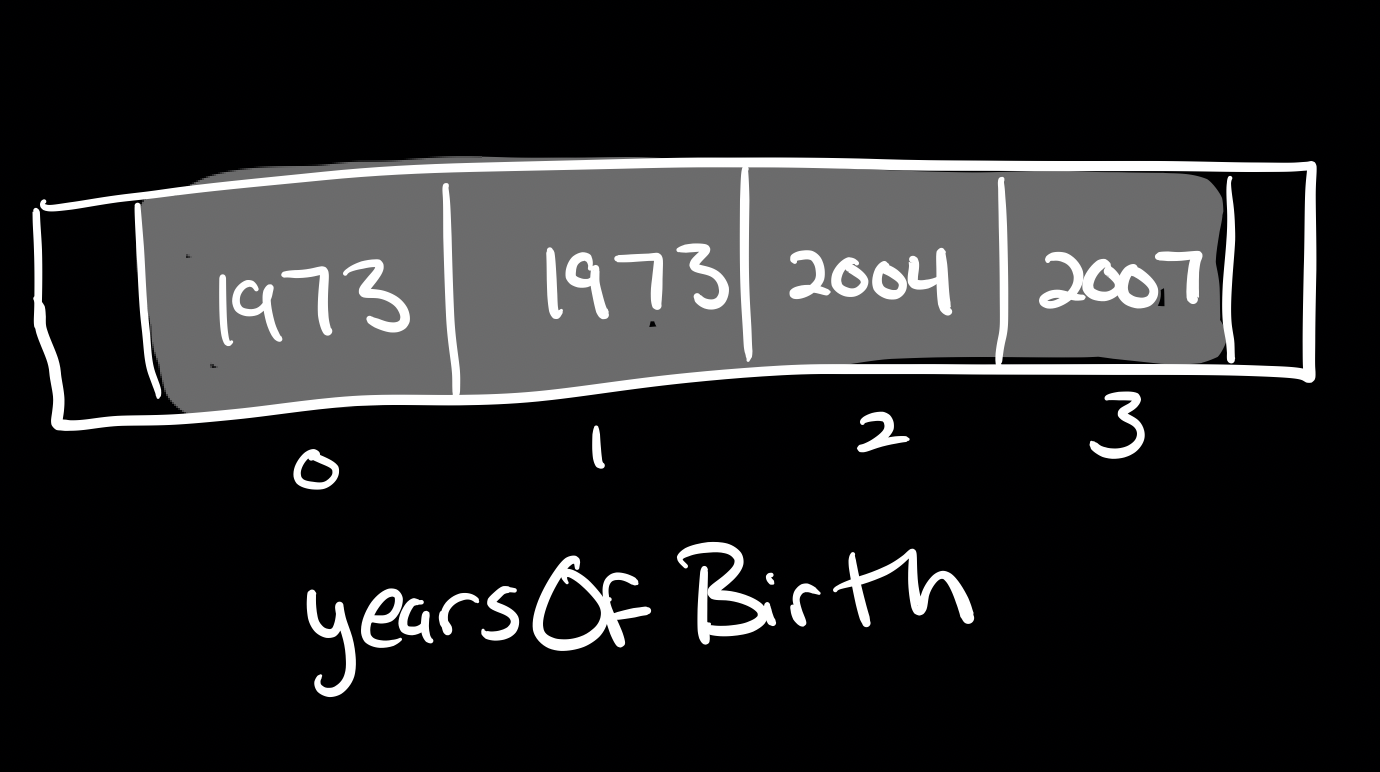 1973 1973 2004 2007
0 1 2 3
yearsOfBirth